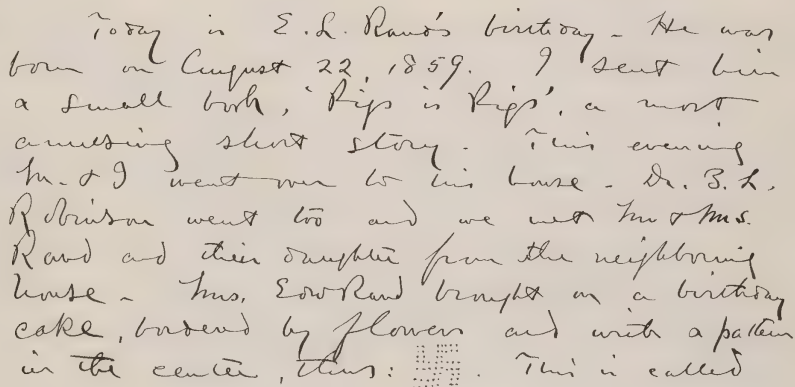 Today is E. L. Rand's birthday - He was
born on August 22, 1859. I sent him
a small book, 'Pigs is Pigs', a most
amusing short story. This evening
M. & I went over to his house - Dr. B. L.
Robinson went too and we met Mr & Mrs.
Rand and their daughter from the neighboring
house - Mrs. Edw Rand brought on a birthday
cake, bordered by flowers and with a pattern
in the center, thus: . This is called